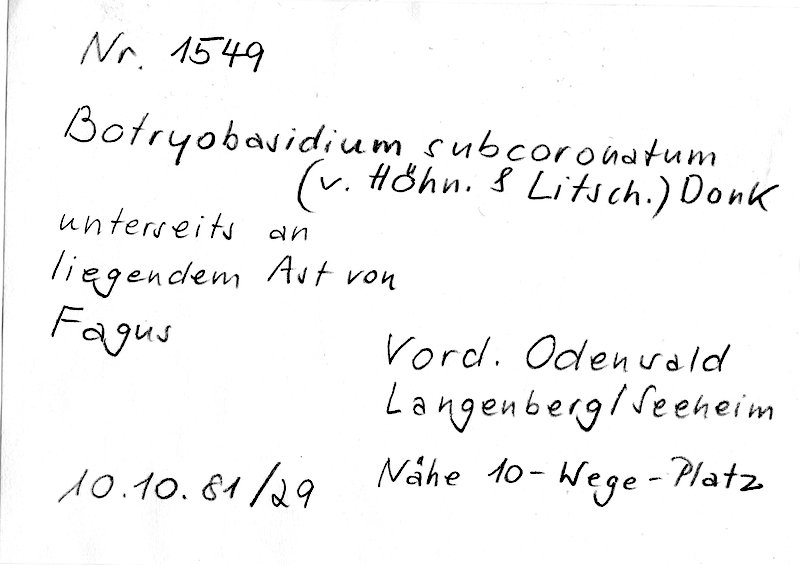 Nr. 1549
Botryobasidium subcoronatum
(v. Höhn. & Litsch.) Donk
unterseits an
liegendem Ast von
Fagus
Vord. Odenwald
Langenberg/Seeheim
10.10.81/29
Nähe 10-Wege-Platz